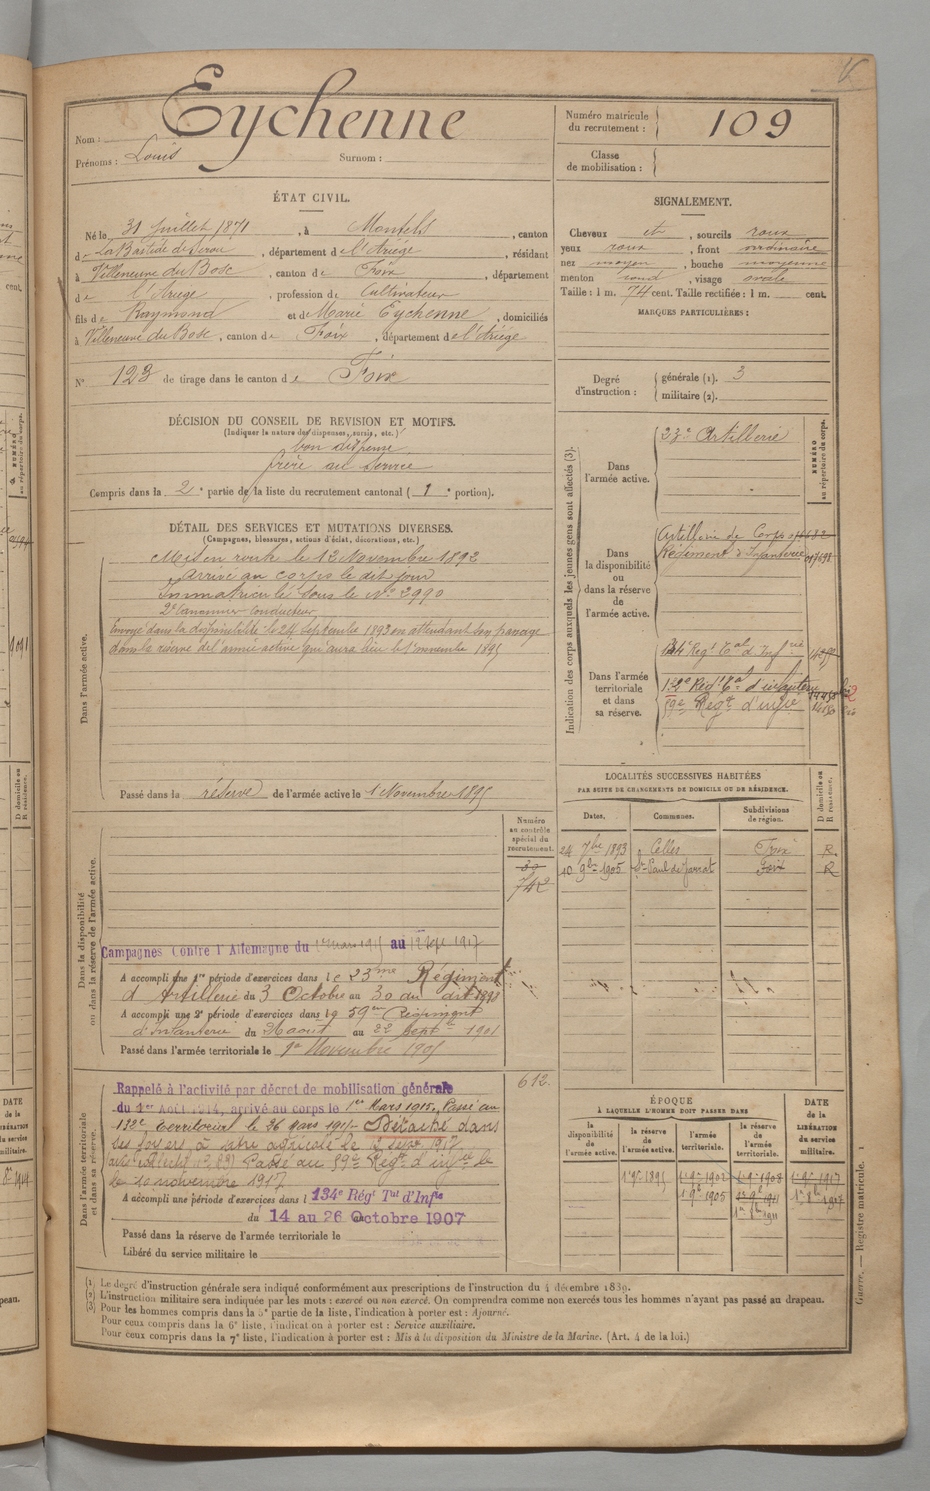 Nom : Eychenne
Prénoms : Louis Surnom :
Numéro matricule du recrutement : 109
Classe de mobilisation :
ÉTAT CIVIL.
Né le 31 Juillet 1871, à Montels, canton
de La Bastide de Serou, département de l'Ariège, résidant
à Villeneuve du Bosc, canton de Foix, département
de l'Ariege, profession de Cultivateur
fils de Raymond et de Marie Eychenne, domiciliés
à Villeneuve du Bosc, canton de Foix, département de l'Ariège
N° 123 de tirage dans le canton de Foix
SIGNALEMENT.
Cheveux et, sourcils roux
yeux roux, front ordinaire
nez moyen, bouche moyenne
menton rond, visage ovale
Taille : 1 m. 74 cent. Taille rectifiée : 1 m. cent.
MARQUES PARTICULIÈRES :
Degré d'instruction : générale (1). 3
militaire (2).
DÉCISION DU CONSEIL DE REVISION ET MOTIFS.
(Indiquer la nature des dispenses, sursis, etc.)
bon dispense
frère au service
Compris dans la 2e partie de la liste du recrutement cantonal (1e portion).
DÉTAIL DES SERVICES ET MUTATIONS DIVERSES.
(Campagnes, blessures, actions d'éclat, décorations, etc.)
Dans l'armée active.
Mis en route le 12 Novembre 1892
Arrivé au corps le dit jour
Immatriculé sous le N° 2990
2e Canonnier Conducteur
Envoyé dans la disponibilité le 24 Septembre 1893 en attendant son passage
dans la réserve de l'armée active qui aura lieu le 1er novembre 1895
Passé dans la réserve de l'armée active le 1 Novembre 1895
Indication des corps auxquels les jeunes gens sont affectés (3).
NUMÉRO au répertoire du corps.
Dans l'armée active.
23e Artillerie
Dans la disponibilité ou dans la réserve de l'armée active.
Artillerie de Corps
Régiment d'Infanterie
Dans l'armée territoriale et dans sa réserve.
134e Regt Tal d'Infrie
132e Régt Tal d'infanterie
59e Regt d'infie
LOCALITÉS SUCCESSIVES HABITÉES
PAR SUITE DE CHANGEMENTS DE DOMICILE OU DE RÉSIDENCE.
Dates. Communes. Subdivisions de région. D domicile ou R résidence.
24 7bre 1893 Celles Foix R
10 9bre 1905 St Paul de Jarrat Foix R
Numéro au contrôle spécial du recrutement.
742
Dans la disponibilité ou dans la réserve de l'armée active.
Campagnes Contre l'Allemagne du 1 mars 1915 au 12 Sept 1917
A accompli une 1re période d'exercices dans le 23me Régiment
d'Artillerie du 3 Octobre au 30 du dit 1898
A accompli une 2e période d'exercices dans le 59e Régiment
d'Infanterie du août au 22 Septbre 1901
Passé dans l'armée territoriale le 1er Novembre 1905
612
Dans l'armée territoriale et dans sa réserve.
Rappelé à l'activité par décret de mobilisation générale
du 1er Août 1914, arrivé au corps le 1er Mars 1915, Passé au
132e Territorial le 26 mars 1915 Détaché dans
ses foyers à titre agricole le 1917
Passé au 59e Régt d'infrie le
le 10 novembre 1917
A accompli une période d'exercices dans l 134e Régt Tal d'Infie
du 14 au 26 Octobre 1907
Passé dans la réserve de l'armée territoriale le
Libéré du service militaire le
ÉPOQUE
À LAQUELLE L'HOMME DOIT PASSER DANS
la disponibilité de l'armée active. la réserve de l'armée active. l'armée territoriale. la réserve de l'armée territoriale. DATE de la LIBÉRATION du service militaire.
1 9bre 1895 1 9bre 1902 1 9bre 1908 1 9bre 1917
1 9bre 1905
Guerre. — Registre matricule. 1
(1) Le degré d'instruction générale sera indiqué conformément aux prescriptions de l'instruction du 4 décembre 1889.
(2) L'instruction militaire sera indiquée par les mots : exercé ou non exercé. On comprendra comme non exercés tous les hommes n'ayant pas passé au drapeau.
(3) Pour les hommes compris dans la 5e partie de la liste, l'indication à porter est : Ajourné.
Pour ceux compris dans la 6e liste, l'indication à porter est : Service auxiliaire.
Pour ceux compris dans la 7e liste, l'indication à porter est : Mis à la disposition du Ministre de la Marine. (Art. 4 de la loi.)